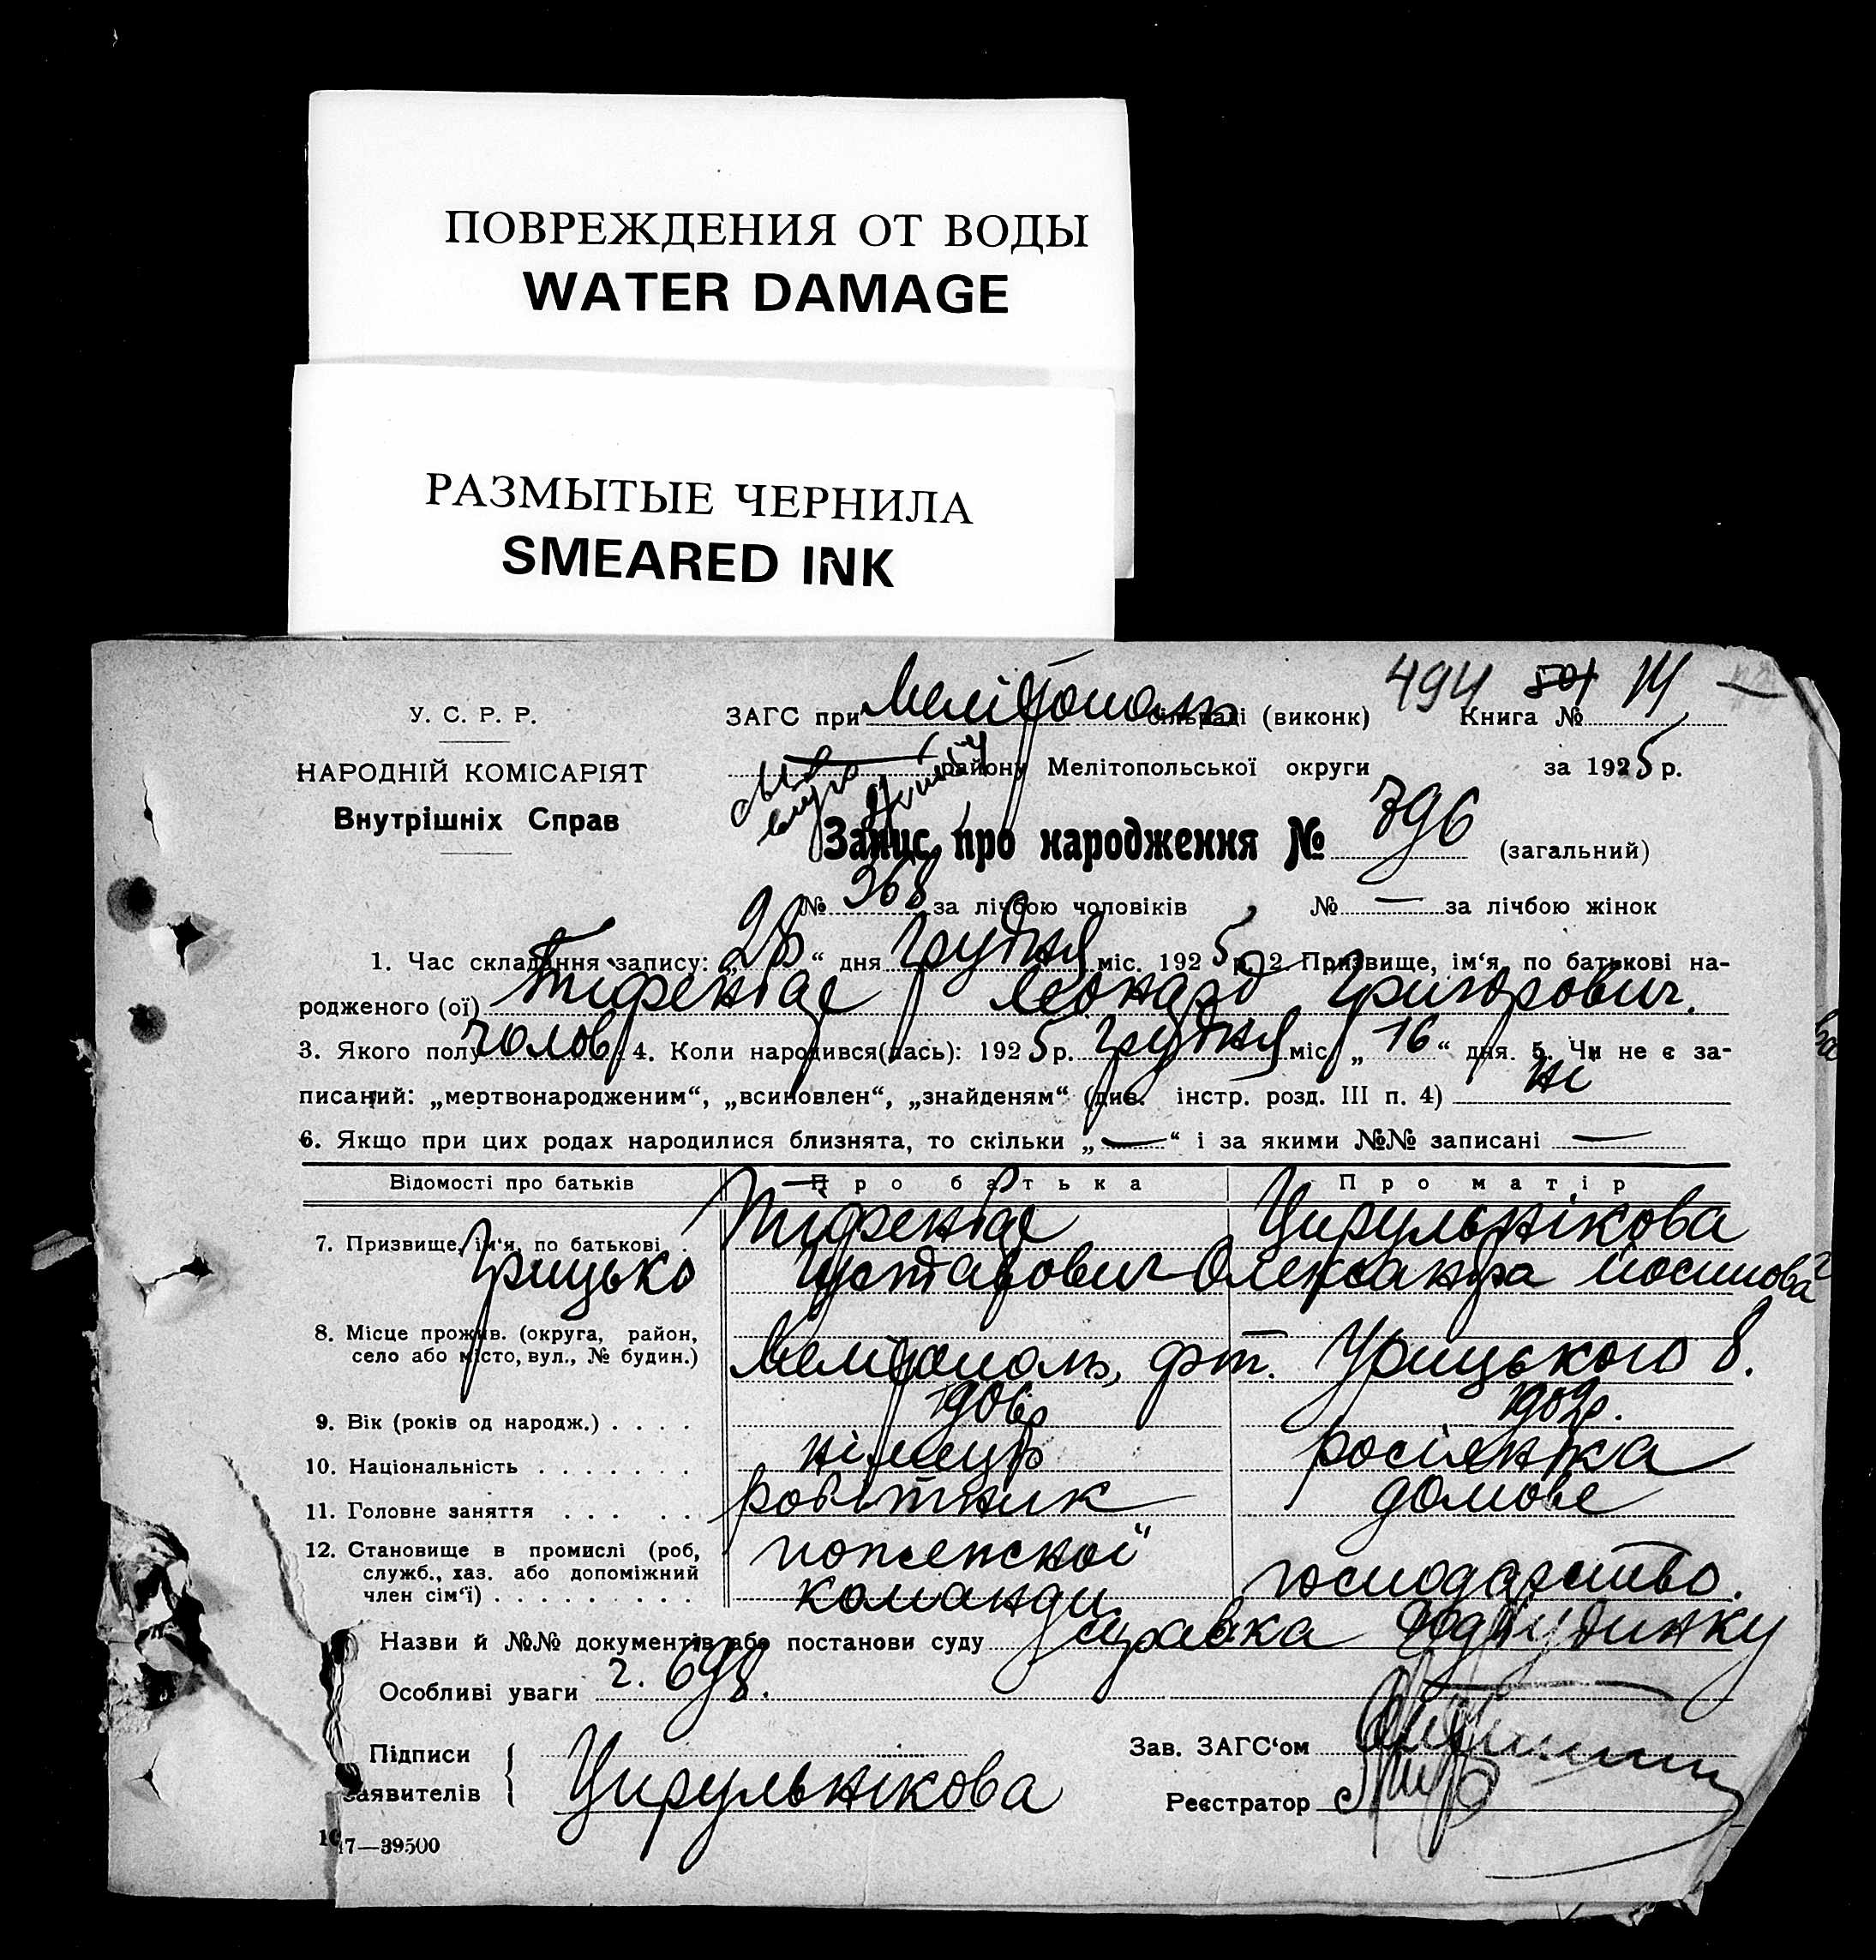 ПОВРЕЖДЕНИЯ ОТ ВОДЫ
WATER DAMAGE
РАЗМЫТЫЕ ЧЕРНИЛА
SMEARED INK
494 501 14
У. С. Р. Р.
ЗАГС при Мелітополь сільраді (виконк) Книга №
НАРОДНІЙ КОМІСАРІЯТ
району Мелітопольської округи за 1925 р.
Внутрішніх Справ
Запис про народження № 796 (загальний)
№ 368 за лічбою чоловіків № — за лічбою жінок
1. Час складання запису: „28“ дня грудня міс. 1925 р. 2. Призвище, ім‘я, по батькові на-
родженого (ої) Тифентае Леонард Григорович.
3. Якого полу чолов. 4. Коли народився(лась): 1925 р. грудня міс. „16“ дня. 5. Чи не є за-
писаний: „мертвонародженим“, „всиновлен“, „знайденям“ (див. інстр. розд. III п. 4) ні
6. Якщо при цих родах народилися близнята, то скільки „—“ і за якими №№ записані —
Відомості про батьків Про батька Про матір
7. Призвище, ім‘я, по батькові Тифентае Цирульнікова
Грицько Густавович Олександра Йосипова
8. Місце прожив. (округа, район,
село або місто, вул., № будин.) Мелітополь, Урицького 8.
9. Вік (років од народж.) 1906р 1902р.
10. Національність німець росіянка
11. Головне заняття робітник домове
12. Становище в промислі (роб, пожежної
служб., хаз. або допоміжний господарство.
член сім‘ї) команди
Назви й №№ документів або постанови суду справка
Особливі уваги ч. 698.
Підписи Зав. ЗАГС‘ом
заявителів Цирульнікова Реєстратор
17—39500